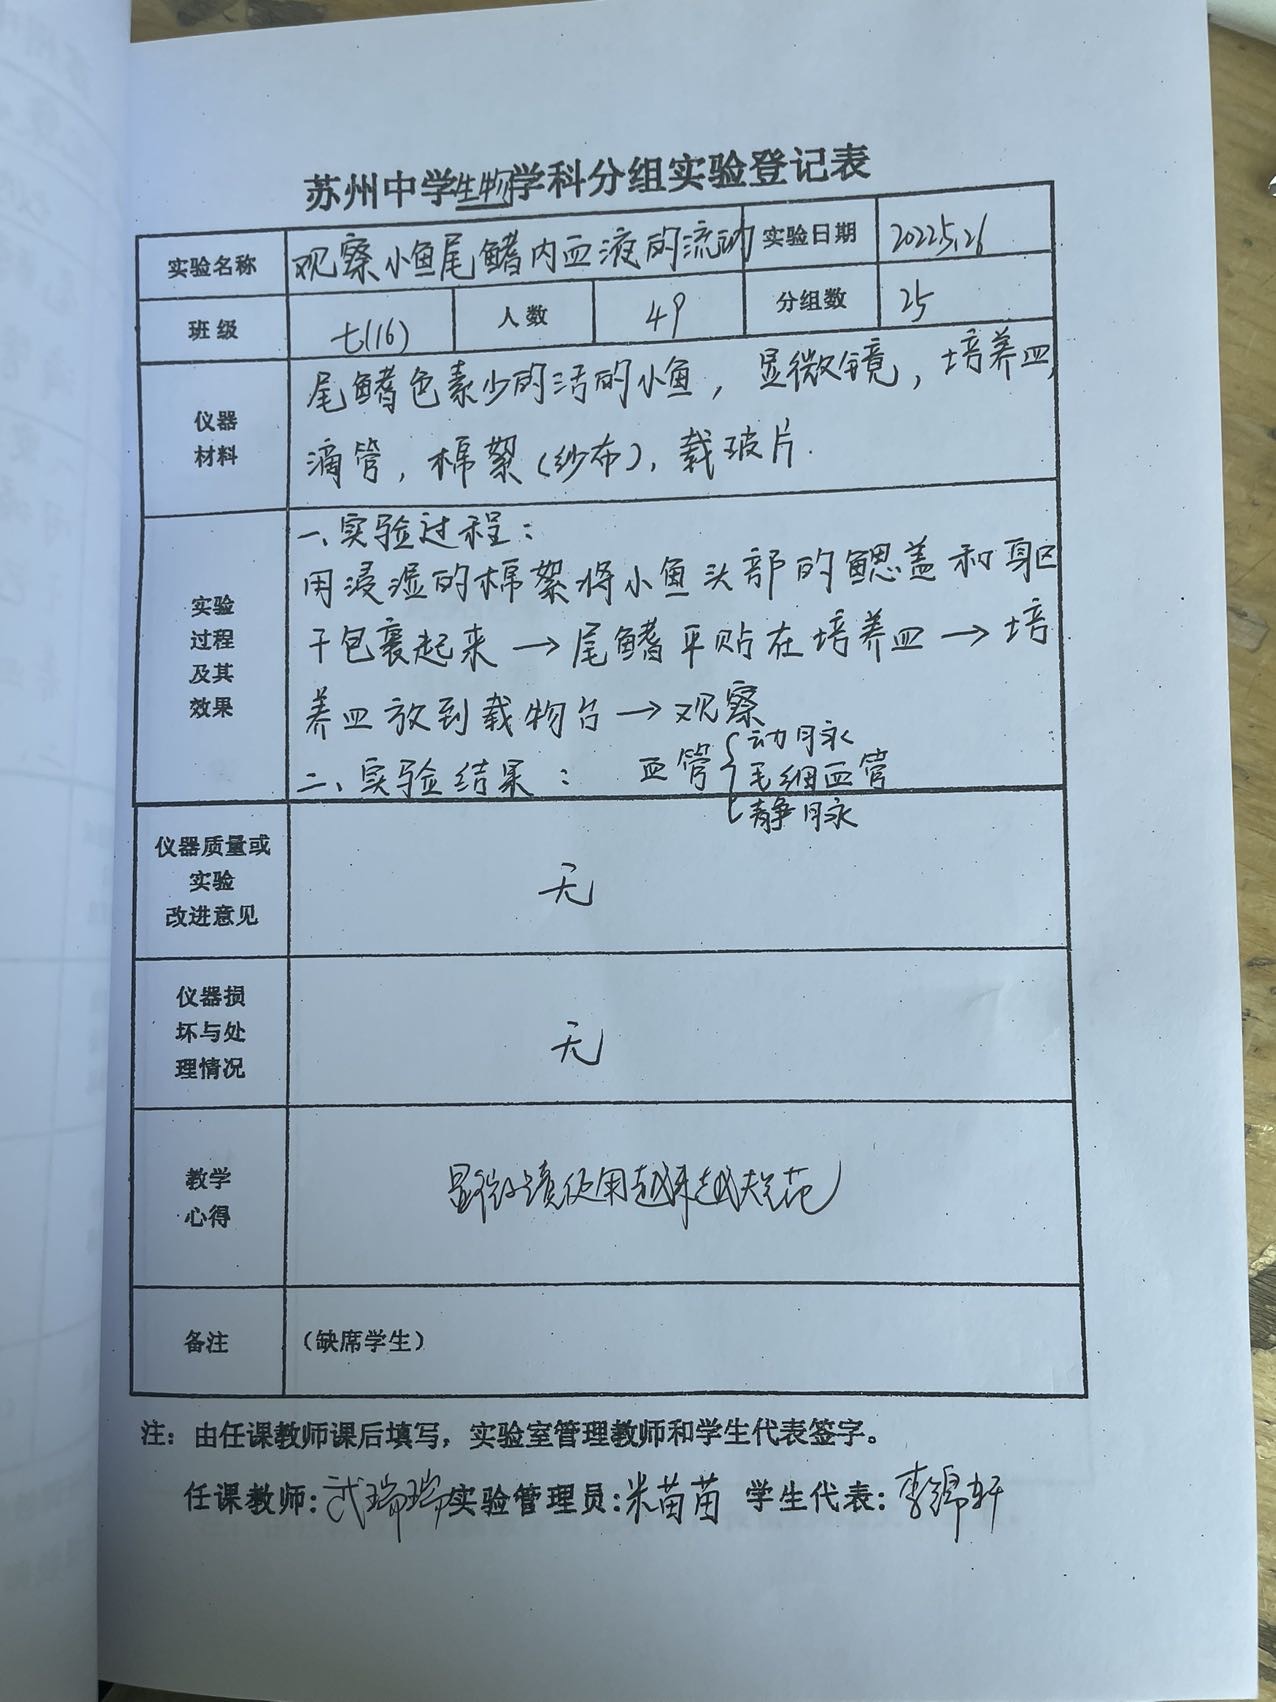 苏州中学生物学科分组实验登记表
实验名称 观察小鱼尾鳍内血液的流动 实验日期 2022.5.26
班级 七(16) 人数 49 分组数 25
仪器
材料
尾鳍色素少的活的小鱼，显微镜，培养皿，
滴管，棉絮（纱布），载玻片.
实验
过程
及其
效果
一、实验过程：
用浸湿的棉絮将小鱼头部的鳃盖和躯
干包裹起来→尾鳍平贴在培养皿→培
养皿放到载物台→观察
二、实验结果： 血管{动脉
毛细血管
静脉
仪器质量或
实验
改进意见
无
仪器损
坏与处
理情况
无
教学
心得
显微镜使用越来越规范
备注 （缺席学生）
注：由任课教师课后填写，实验室管理教师和学生代表签字。
任课教师:武瑞瑞 实验管理员:米苗苗 学生代表:李锦轩